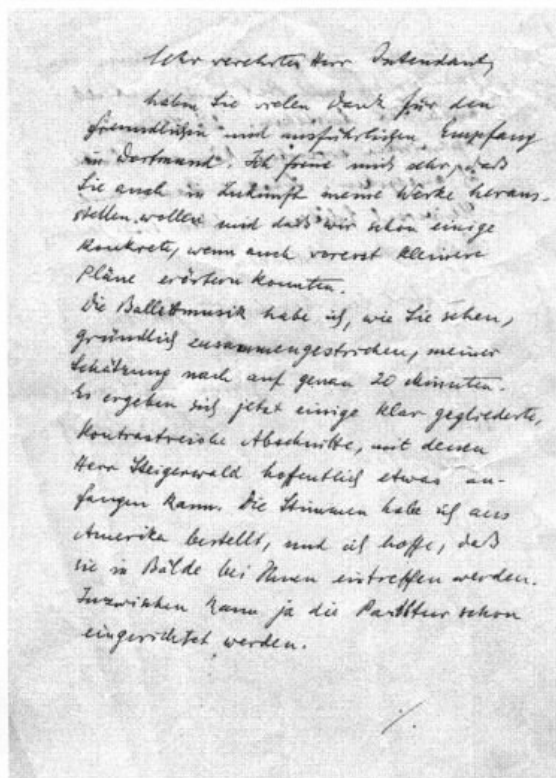 Sehr verehrter Herr Intendant,
haben Sie vielen Dank für den
freundlichen und ausführlichen Empfang
in Dortmund. Ich freue mich sehr, daß
Sie auch in Zukunft meine Werke heraus-
stellen wollen und daß wir schon einige
konkrete, wenn auch vorerst kleinere
Pläne erörtern konnten.
Die Ballettmusik habe ich, wie Sie sehen,
gründlich zusammengestrichen, meiner
Schätzung nach auf genau 20 Minuten.
Es ergeben sich jetzt einige klar gegliederte,
kontrastreiche Abschnitte, mit denen
Herr Steigerwald hoffentlich etwas an-
fangen kann. Die Stimmen habe ich aus
Amerika bestellt, und ich hoffe, daß
sie in Bälde bei Ihnen eintreffen werden.
Inzwischen kann ja die Partitur schon
eingerichtet werden.
./.